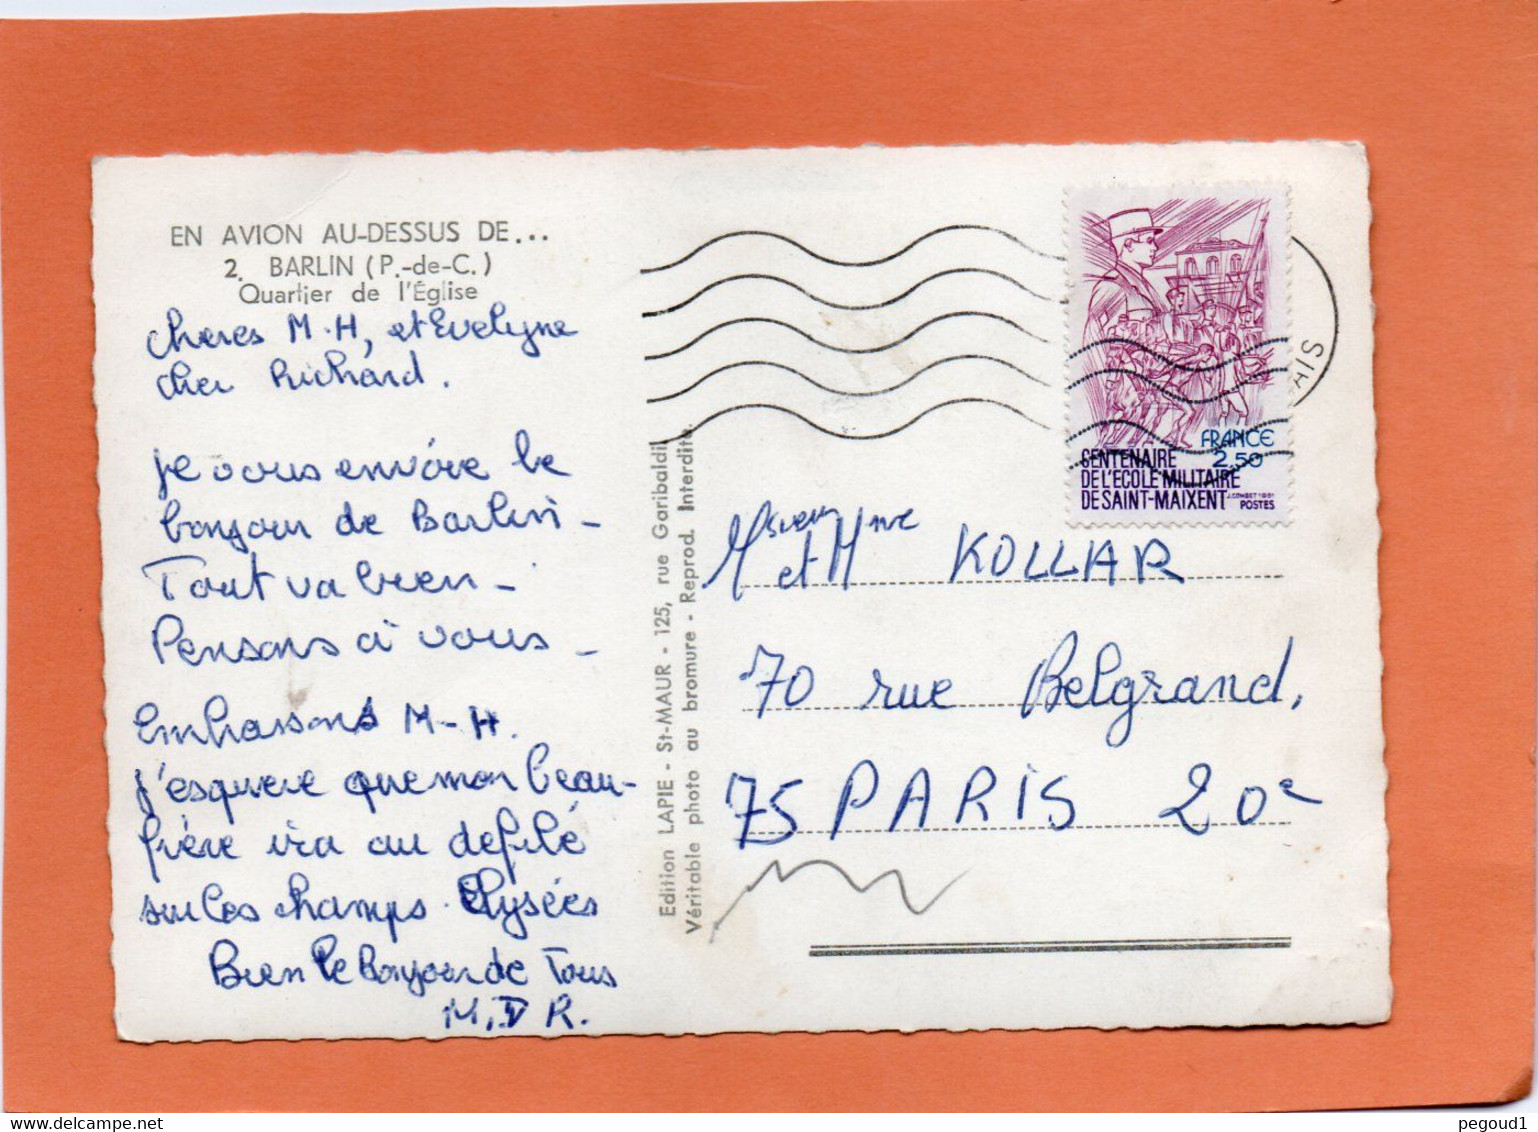 EN AVION AU-DESSUS DE...
2. BARLIN (P.-de-C.)
Quartier de l'Église
Cheres M-H, et Evelyne
cher Richard.
Je vous envoie le
bonjour de Barlin -
Tout va bien -
Pensons à vous -
Embrassons M-H.
J'espere que mon beau-
frère ira au defilé
sur les champs Elysées
Bien le bonjour de Tous
M. D R.
Edition LAPIE - St-MAUR - 125, rue Garibaldi
Véritable photo au bromure - Reprod. Interdite
AIS
FRANCE
2,50
CENTENAIRE
DE L'ÉCOLE MILITAIRE
DE SAINT-MAIXENT
J.COMBET 1981
POSTES
Msieur
et Mme KOLLAR
70 rue Belgrand,
75 PARIS 20e
pegoud1